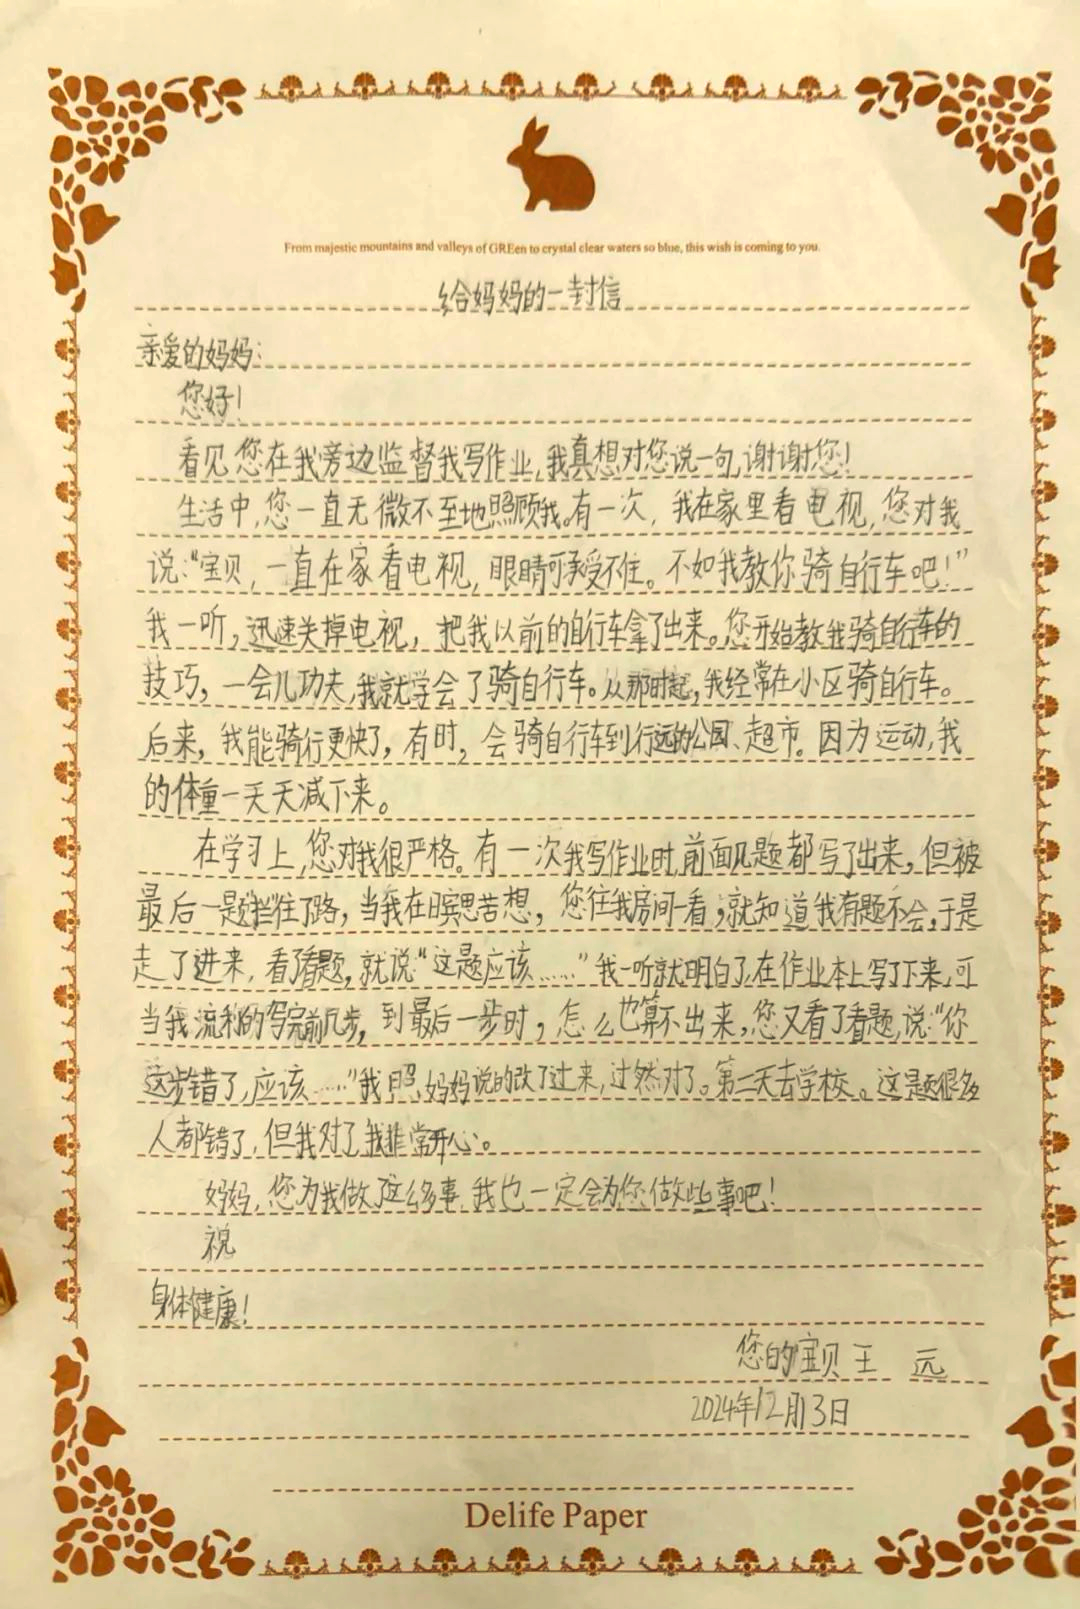 From majestic mountains and valleys of GREen to crystal clear waters so blue, this wish is coming to you.
给妈妈的一封信
亲爱的妈妈:
您好!
看见您在我旁边监督我写作业,我真想对您说一句,谢谢您!
生活中,您一直无微不至地照顾我。有一次,我在家里看电视,您对我
说:“宝贝,一直在家看电视,眼睛可承受不住。不如我教你骑自行车吧!”
我一听,迅速关掉电视,把我以前的自行车拿了出来。您开始教我骑自行车的
技巧,一会儿功夫,我就学会了骑自行车。从那时起,我经常在小区骑自行车。
后来,我能骑行更快了,有时,会骑自行车到很远的公园、超市。因为运动,我
的体重一天天减下来。
在学习上,您对我很严格。有一次我写作业时,前面几题都写了出来,但被
最后一题拦住了路,当我在冥思苦想,您往我房间一看,就知道我有题不会,于是
走了进来,看了看题,就说“这题应该……”我一听就明白了,在作业本上写了下来,可
当我流利的写完前几步,到最后一步时,怎么也算不出来,您又看了看题,说:“你
这步错了,应该……”我照妈妈说的改了过来,过然对了。第二天去学校。这是题很多
人都错了,但我对了,我非常开心。
妈妈,您为我做了这么多事,我也一定会为您做些事吧!
祝
身体健康!
您的宝贝王 远
2024年12月13日
Delife Paper